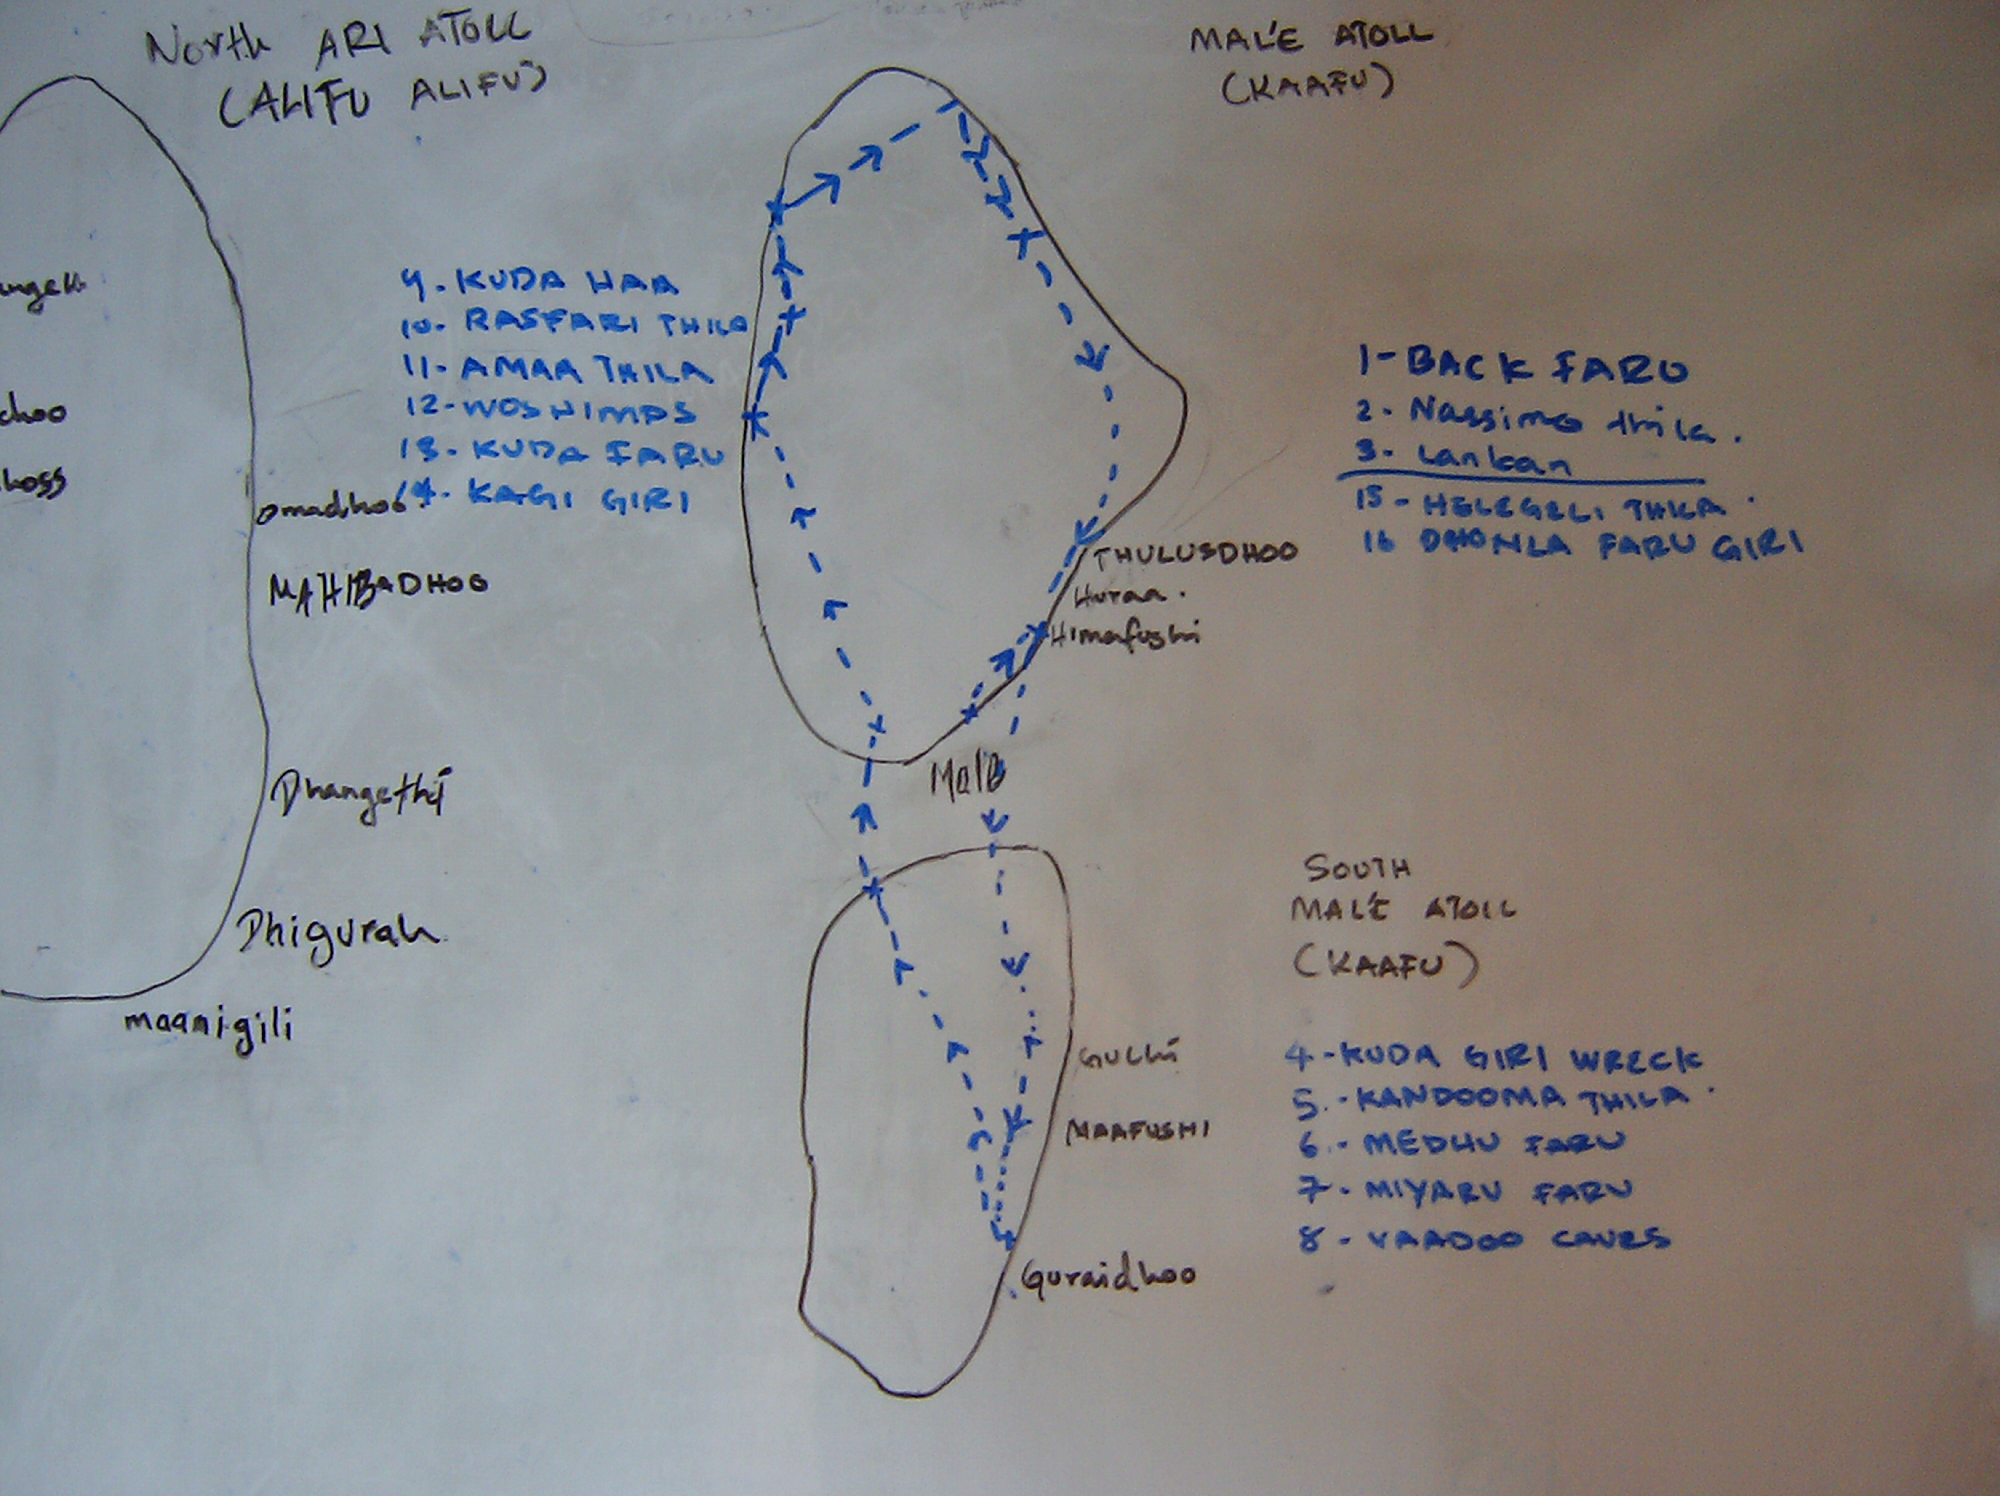 North ARI ATOLL
(ALIFU ALIFU)
omadhoo
MAHIBADHOO
Dhangethi
Dhigurah
maamigili
9. KUDA HAA
10- RASFARI THILA
11- AMAA THILA
12-WOSHIMAS
13- KUDA FARU
14- KAGI GIRI
MALE ATOLL
(KAAFU)
1-BACK FARU
2. Nassimo thila.
3. Lankan
15-HELEGELI THILA.
16 DHONLA FARU GIRI
THULUSDHOO
Huraa.
Himafushi
Male
SOUTH
MALE ATOLL
(KAAFU)
GULHI
MAAFUSHI
Guraidhoo
4-KUDA GIRI WRECK
5.-KANDOOMA THILA.
6.- MEDHU FARU
7- MIYARU FARU
8- VAADOO CAVES